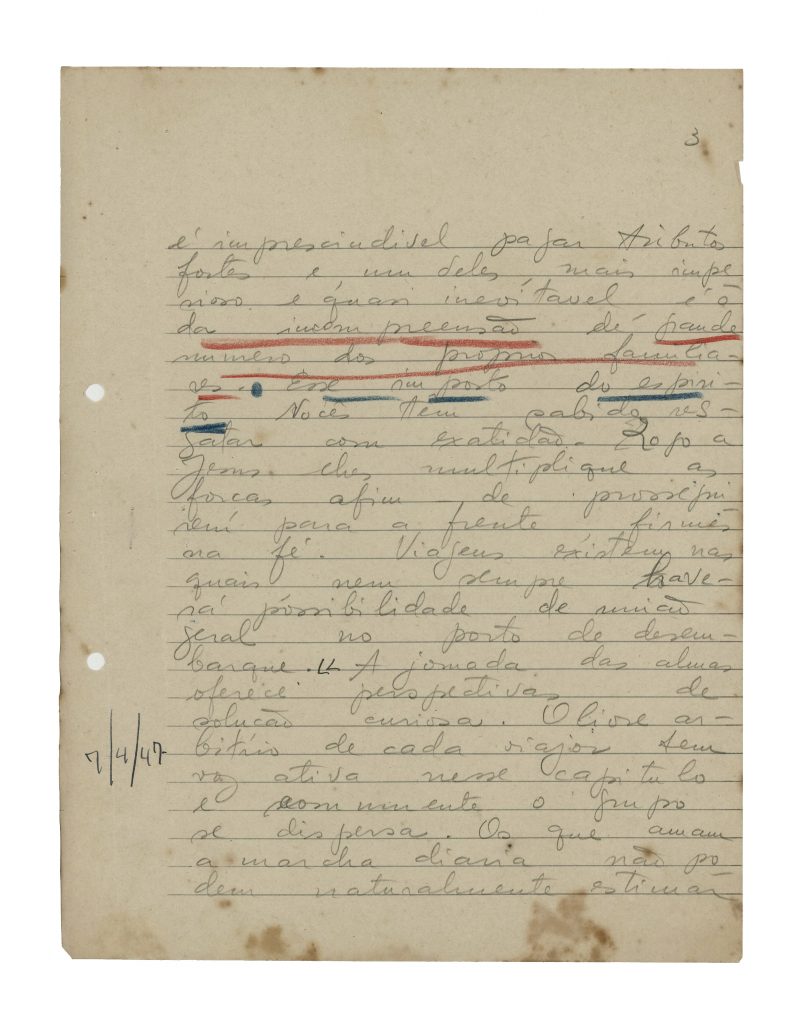 3
é imprescindivel pagar tributos
fortes e um deles, mais impe
rioso e quasi inevitavel é o
da incompreensão de grande
numero dos proprios familia-
res. Esse imposto do espiri-
to Vocês tem sabido res-
gatar com exatidão. Rogo a
Jesus lhes multiplique as
forças afim de prosségui
rem para a frente firmes
na fé. Viagens existem nas
quais nem sempre have-
rá possibilidade de união
geral no porto de desem-
barque. A jornada das almas
oferece perspectivas de
solução curiosa. O livre ar-
bitrio de cada viajor tem
7/4/47
voz ativa nesse capitulo
e comumente o grupo
se dispersa. Os que amam
a marcha diaria não po
dem naturalmente estimar